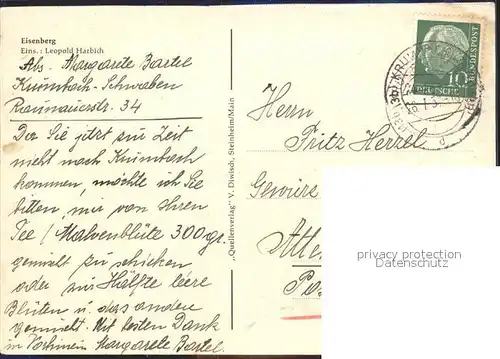 Eisenberg
Eins.: Leopold Harbich
Abs. Margarete Bartel
Krumbach-Schwaben
Raunauerstr. 34
Da Sie jetzt zur Zeit
nicht nach Krumbach
kommen, möchte ich Sie
bitten, mir von Ihren
Tee / Malvenblüte 300 gr.
gemischt zu schicken
oder zur Hälfte leere
Blüten u. das andere
gemischt. Mit besten Dank
im Vorhinein Margarete Bartel.
"Quellenverlag" V. Diwisch, Steinheim/Main
10
DEUTSCHE
BUNDESPOST
Herrn
Fritz Herzel
Gewürs
privacy protection
Datenschutz